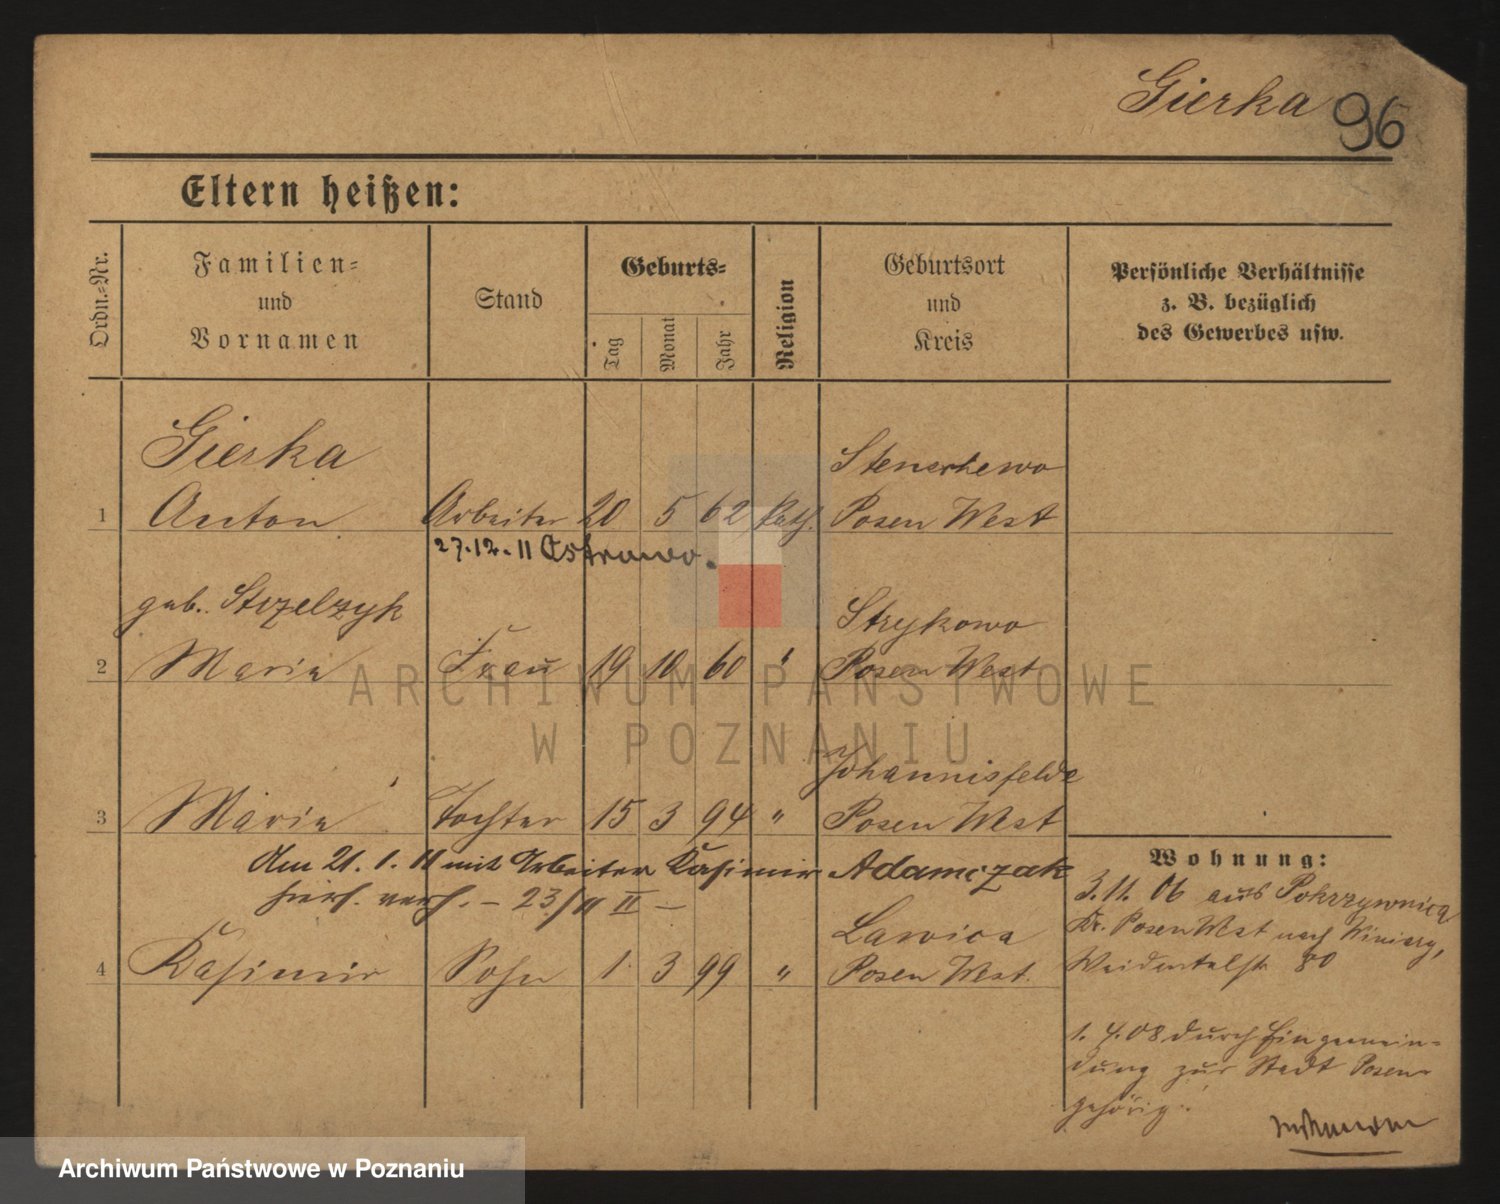 Gierka 96
Eltern heißen:
Ordn.-Nr.
Familien-
und
Vornamen
Stand
Geburts-
Tag
Monat
Jahr
Religion
Geburtsort
und
Kreis
Persönliche Verhältnisse
z. B. bezüglich
des Gewerbes usw.
Gierka
Stenschewo
1 Anton Arbeiter 20 5 62 kath. Posen West
27.12.11 Ostrowo.
geb. Strzelzyk
Strykowo
2 Maria Frau 19 10 60 " Posen West
ARCHIWUM PAŃSTWOWE
W POZNANIU
Johannisfelde
3 Maria Tochter 15 3 94 " Posen West
Am 21.1.11 mit Arbeiter Kasimir Adamczak
hierf. verh. - 23/II II -
Lawica
4 Kasimir Sohn 1 3 99 " Posen West.
Wohnung:
3.11.06 aus Pokrzywnica
Kr. Posen West nach Winiary,
Weidentalstr. 80
1.4.08 durch Eingemein-
dung zur Stadt Posen
gehörig.
Archiwum Państwowe w Poznaniu